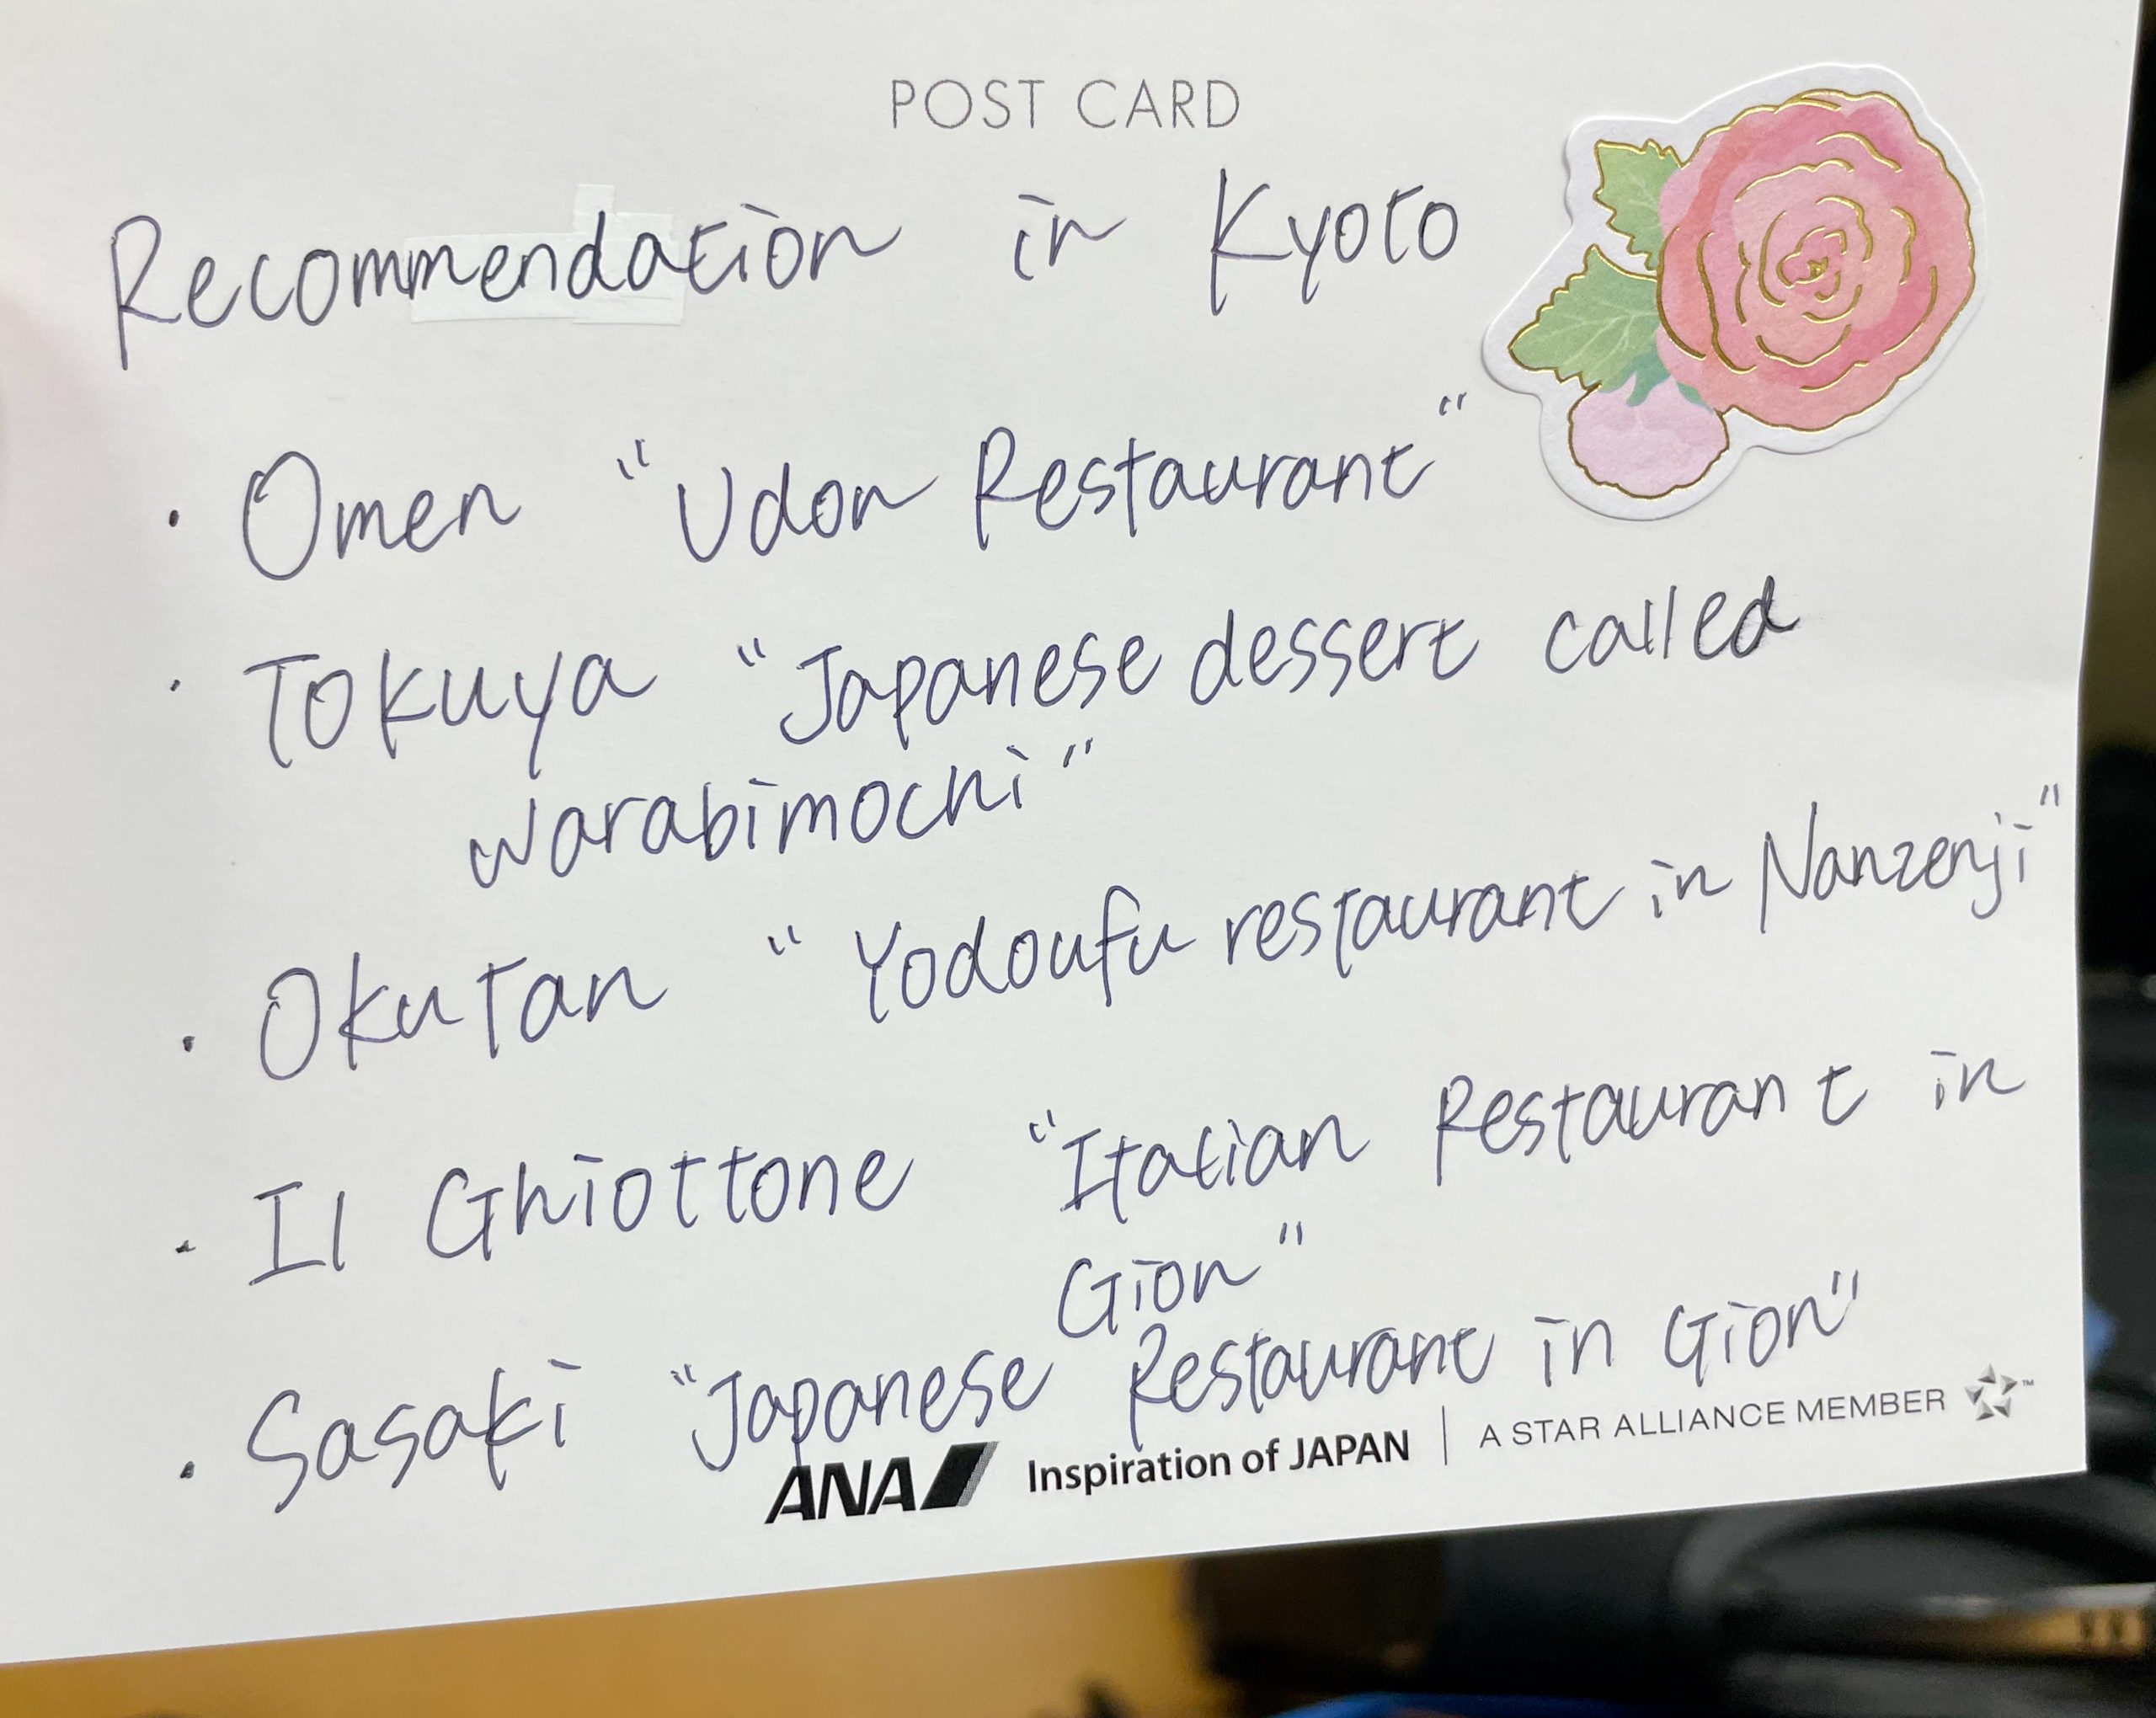 POST CARD
Recommendation in Kyoto
· Omen "Udon Restaurant"
· Tokuya "Japanese dessert called
warabimochi"
· Okutan "Yodoufu restaurant in Nanzenji"
· Il Ghiottone "Italian Restaurant in
Gion"
· Sasaki "Japanese Restaurant in Gion"
ANA Inspiration of JAPAN | A STAR ALLIANCE MEMBER ™